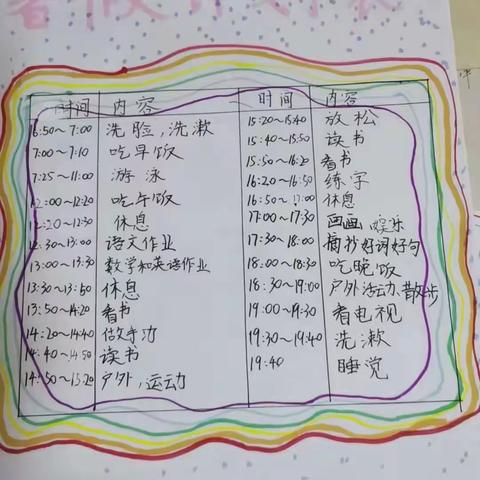 暑假计划表
时间 内容
6:50~7:00 洗脸,洗漱
7:00~7:10 吃早饭
7:25~11:00 游泳
12:00~12:20 吃午饭
12:20~12:30 休息
12:30~13:00 语文作业
13:00~13:30 数学和英语作业
13:30~13:50 休息
13:50~14:20 看书
14:20~14:40 做手功
14:40~14:50 读书
14:50~15:20 户外,运动
时间 内容
15:20~15:40 放松
15:40~15:50 读书
15:50~16:20 看书
16:20~16:50 练字
16:50~17:00 休息
17:00~17:30 画画 娱乐
17:30~18:00 摘抄好词好句
18:00~18:30 吃晚饭
18:30~19:00 户外活动,散步
19:00~19:30 看电视
19:30~19:40 洗漱
19:40 睡觉